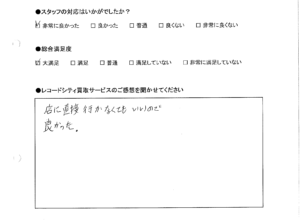 ●スタッフの対応はいかがでしたか？
☑ 非常に良かった □ 良かった □ 普通 □ 良くない □ 非常に良くない
●総合満足度
☑ 大満足 □ 満足 □ 普通 □ 満足していない □ 非常に満足していない
●レコードシティ買取サービスのご感想を聞かせてください
店に直接行かなくてもいいので
良かった。